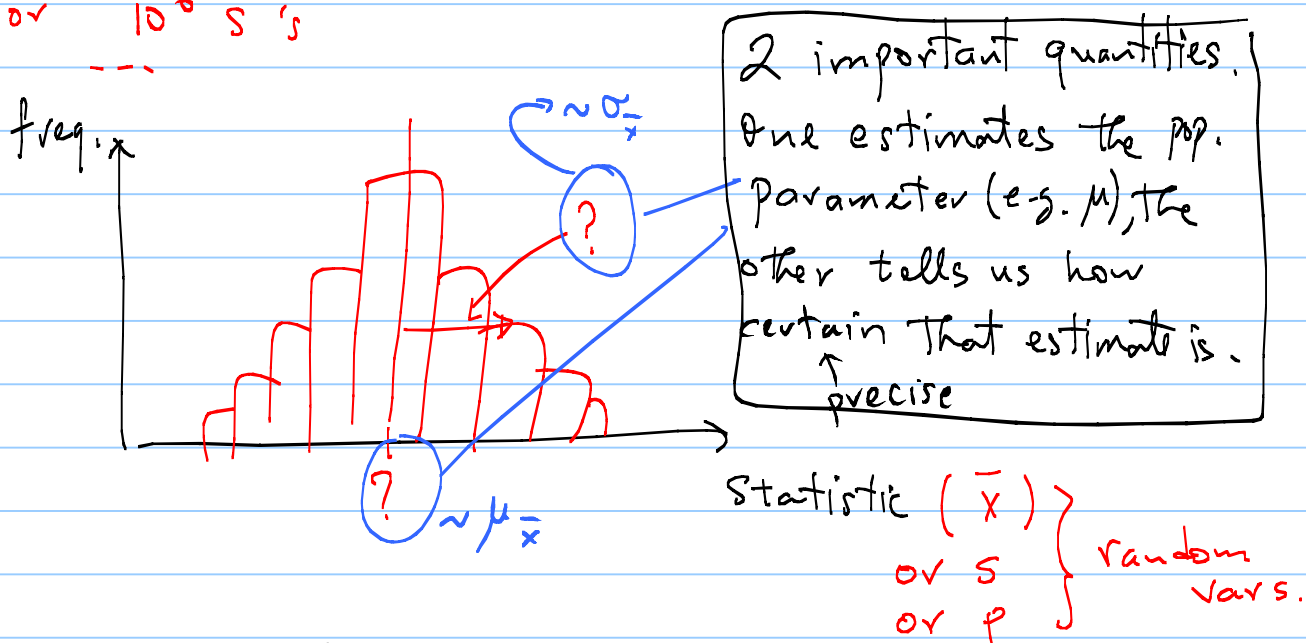 or 10⁶ s 's
- - -
freq.
~ σ_x̄
?
?
~ μ_x̄
2 important quantities.
One estimates the pop.
parameter (e.g. μ), the
other tells us how
certain that estimate is.
precise
Statistic ( x̄ )
or s
or p
random
vars.